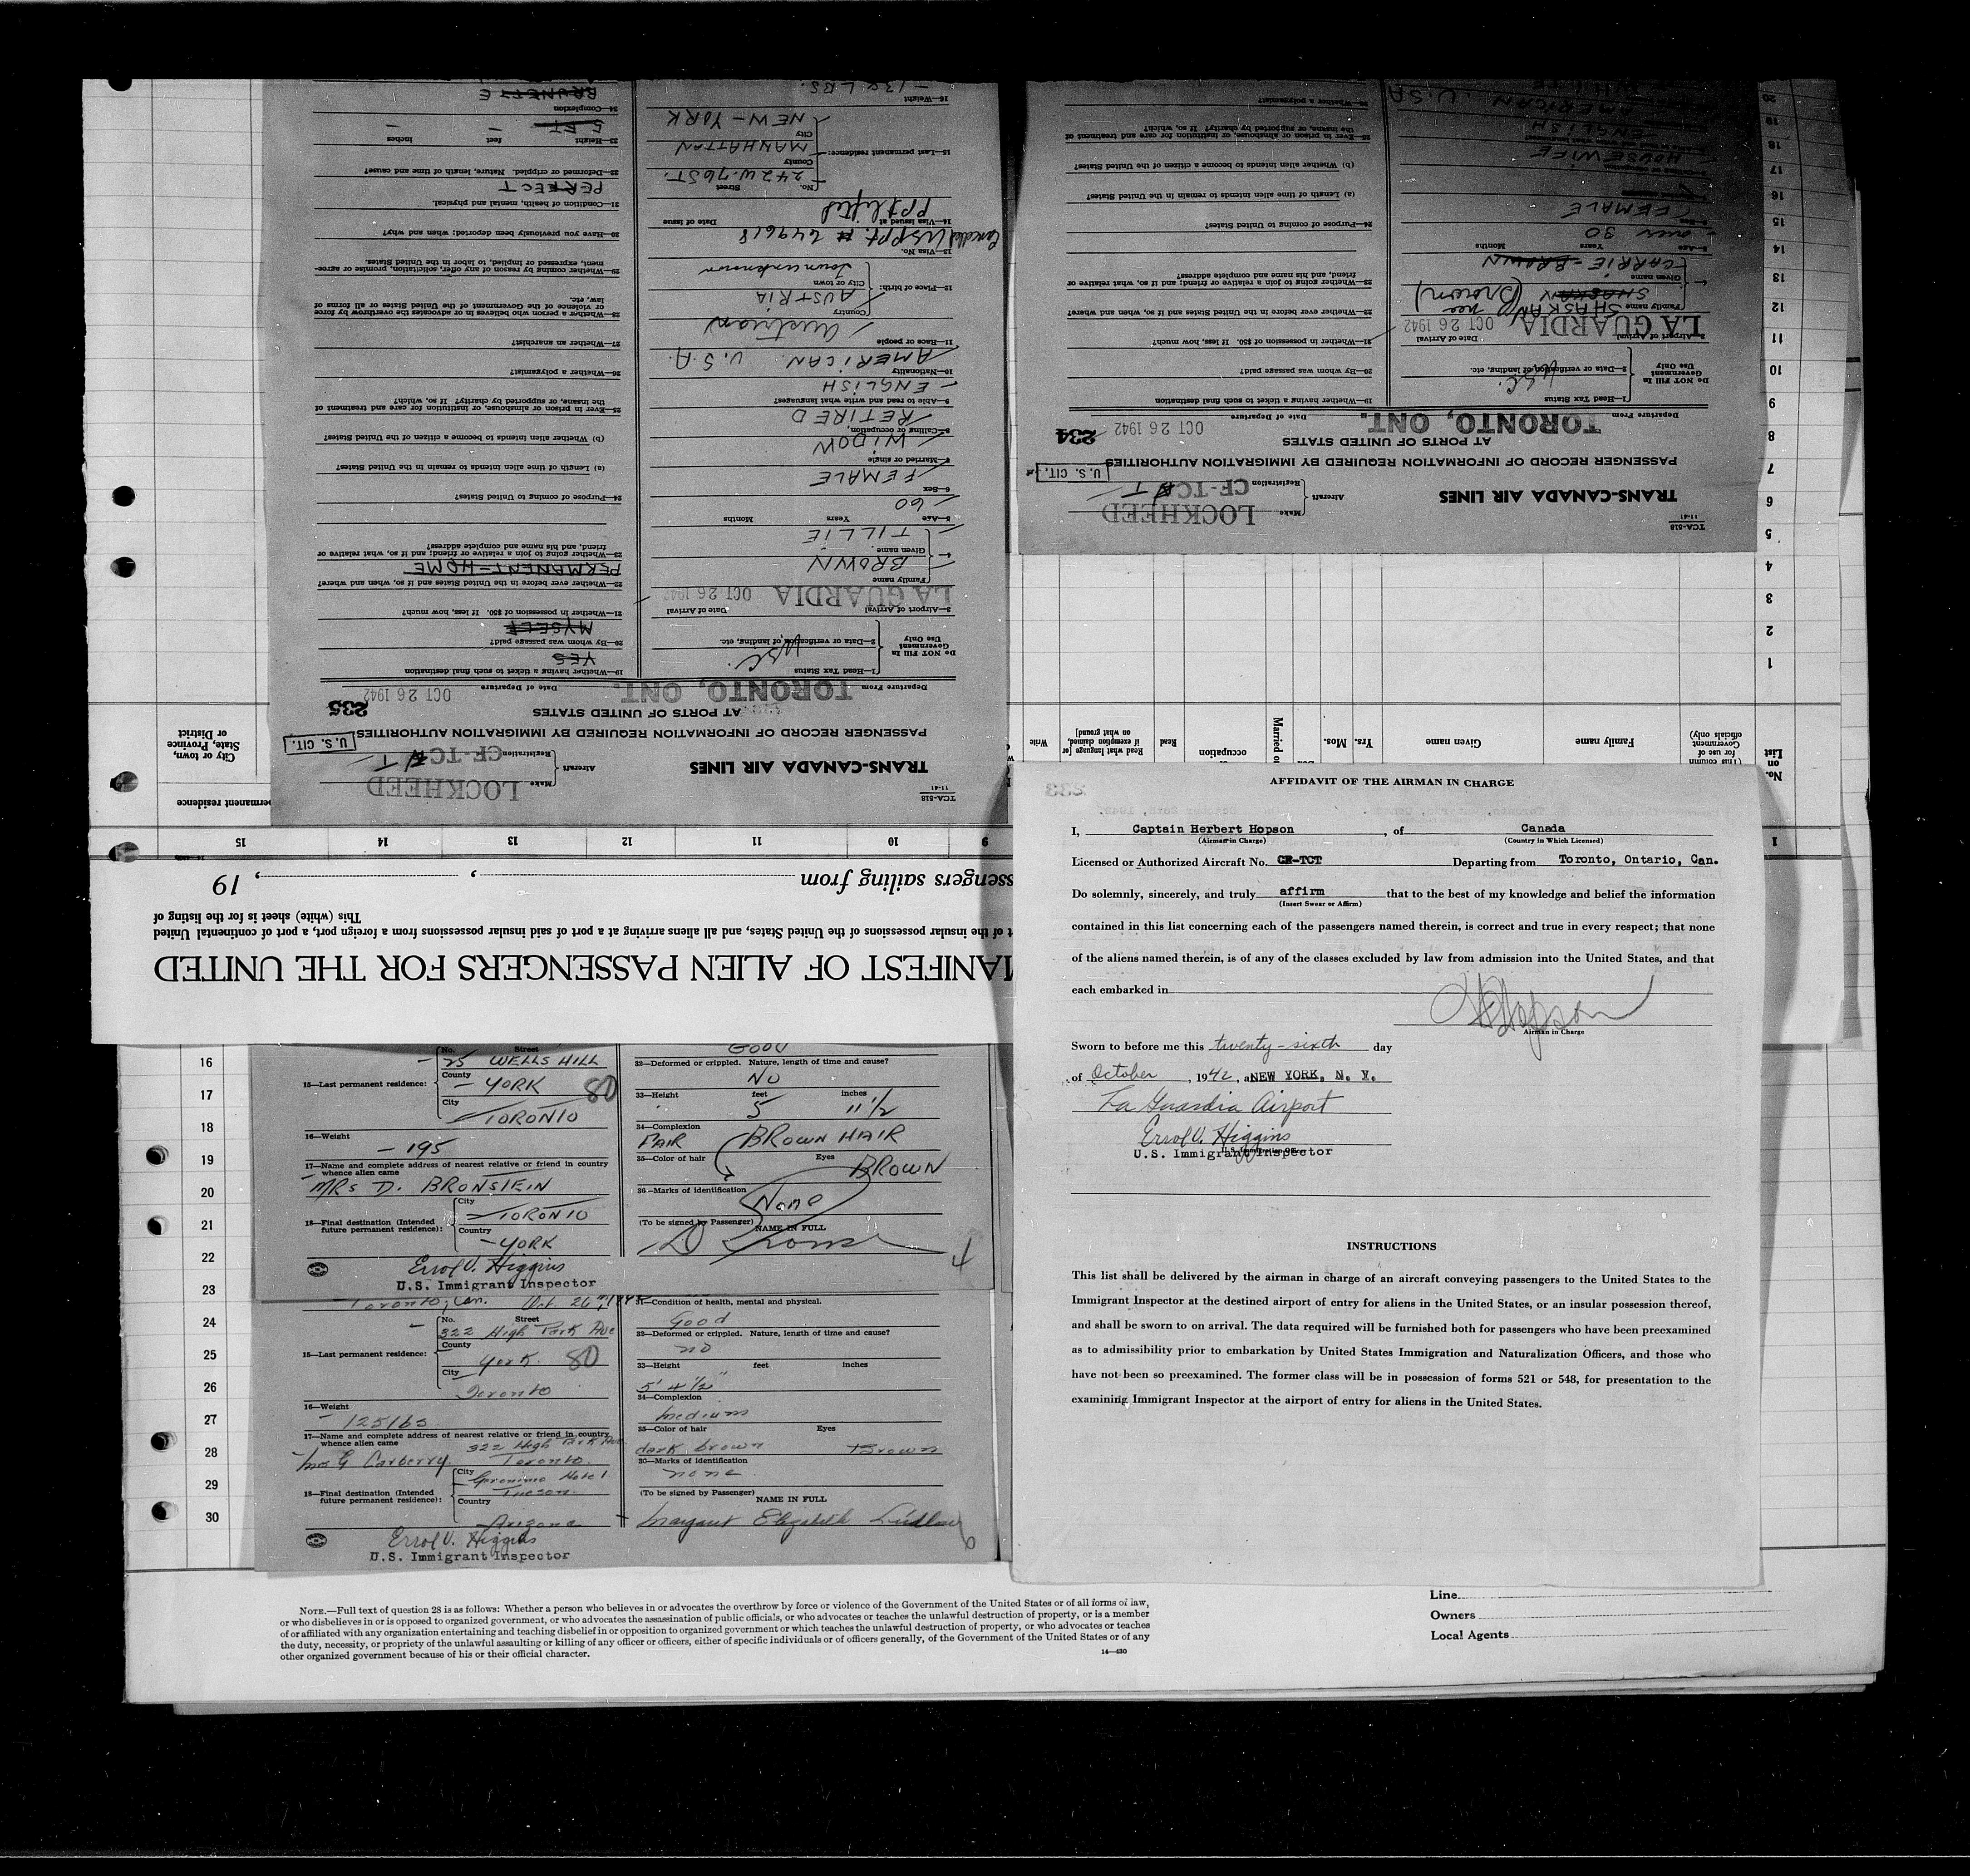 TCA-518
11-41
TRANS-CANADA AIR LINES
Aircraft { Make LOCKHEED
Registration CF-TCT
PASSENGER RECORD OF INFORMATION REQUIRED BY IMMIGRATION AUTHORITIES
U. S. CIT.
AT PORTS OF UNITED STATES
235
Departure From TORONTO, ONT. Date of Departure OCT 26 1942
Do NOT Fill In
Government
Use Only
1—Head Tax Status
2—Data or verification of landing, etc.
USC.
3—Airport of Arrival LA GUARDIA Date of Arrival OCT 26 1942
4— Family name BROWN
Given name TILLIE
5—Age Years Months
60
6—Sex
FEMALE
7—Married or single
WIDOW
8—Calling or occupation.
RETIRED
9—Able to read and write what languages?
ENGLISH
10—Nationality
AMERICAN. U.S.A.
11—Race or people
Austrian
12—Place of birth: Country
AUSTRIA
City or town
Town unknown
13—Visa No.
Cancelled US PPt. # 249618
14—Visa issued at Date of Issue
PPt lifted
15—Last permanent residence: No. Street
242 W-76 ST.
County
MANHATTAN
City
NEW-YORK
16—Weight
130 LBS.
19—Whether having a ticket to such final destination
YES
20—By whom was passage paid?
MYSELF
21—Whether in possession of $50. If less, how much?
22—Whether ever before in the United States and if so, when and where?
PERMANENT-HOME
23—Whether going to join a relative or friend; and if so, what relative or
friend, and his name and complete address?
24—Purpose of coming to United States?
(a) Length of time alien intends to remain in the United States?
(b) Whether alien intends to become a citizen of the United States?
25—Ever in prison or almshouse, or institution for care and treatment of
the insane, or supported by charity? If so, which?
26—Whether a polygamist?
27—Whether an anarchist?
28—Whether a person who believes in or advocates the overthrow by force
or violence of the Government of the United States or all forms of
law, etc.
29—Whether coming by reason of any offer, solicitation, promise or agree-
ment, expressed or implied, to labor in the United States.
30—Have you previously been deported; when and why?
31—Condition of health, mental and physical.
PERFECT
32—Deformed or crippled. Nature, length of time and cause?
33—Height feet inches
5 FT
34—Complexion
BRUNETTE
TCA-518
11-41
TRANS-CANADA AIR LINES
Aircraft { Make LOCKHEED
Registration CF-TCT
PASSENGER RECORD OF INFORMATION REQUIRED BY IMMIGRATION AUTHORITIES
U. S. CIT.
AT PORTS OF UNITED STATES
234
Departure From TORONTO, ONT. Date of Departure OCT 26 1942
Do NOT Fill In
Government
Use Only
1—Head Tax Status
2—Data or verification of landing, etc.
USC.
3—Airport of Arrival LA GUARDIA Date of Arrival OCT 26 1942
Family name SHASKAN nee (Brown)
SHASKAN
Given name
CARRIE-BROWN
5—Age Years Months
over 30
FEMALE
HOUSEWIFE
ENGLISH
AMERICAN U.S.A
19—Whether having a ticket to such final destination
20—By whom was passage paid?
21—Whether in possession of $50. If less, how much?
22—Whether ever before in the United States and if so, when and where?
23—Whether going to join a relative or friend; and if so, what relative or
friend, and his name and complete address?
24—Purpose of coming to United States?
(a) Length of time alien intends to remain in the United States?
(b) Whether alien intends to become a citizen of the United States?
25—Ever in prison or almshouse, or institution for care and treatment of
the insane, or supported by charity? If so, which?
26—Whether a polygamist?
1
2
3
4
5
6
7
8
9
10
11
12
13
14
15
16
17
18
19
20
ANIFEST OF ALIEN PASSENGERS FOR THE UNITED
t of the insular possessions of the United States, and all aliens arriving at a port of said insular possessions from a foreign port, a port of continental United
This (white) sheet is for the listing of
ssengers sailing from , , 19
1 9 10 11 12 13 14 15
No.
on
List
(This column
for use of
Government
officials only)
Family name
Given name
Yrs. Mos.
Married or
occupation
Read
Read what language [or
if exemption claimed,
on what ground]
Write
permanent residence
City or town,
State, Province
or District
233
AFFIDAVIT OF THE AIRMAN IN CHARGE
I, Captain Herbert Hopson, of Canada
(Airman in Charge) (Country in Which Licensed)
Licensed or Authorized Aircraft No. CF-TCT Departing from Toronto, Ontario, Can.
Do solemnly, sincerely, and truly affirm that to the best of my knowledge and belief the information
(Insert Swear or Affirm)
contained in this list concerning each of the passengers named therein, is correct and true in every respect; that none
of the aliens named therein, is of any of the classes excluded by law from admission into the United States, and that
each embarked in
H Hopson
Airman in Charge
Sworn to before me this twenty-sixth day
of October, 1942, at NEW YORK, N. Y.
La Guardia Airport
Errol V. Higgins
U.S. Immigrant Inspector
INSTRUCTIONS
This list shall be delivered by the airman in charge of an aircraft conveying passengers to the United States to the
Immigrant Inspector at the destined airport of entry for aliens in the United States, or an insular possession thereof,
and shall be sworn to on arrival. The data required will be furnished both for passengers who have been preexamined
as to admissibility prior to embarkation by United States Immigration and Naturalization Officers, and those who
have not been so preexamined. The former class will be in possession of forms 521 or 548, for presentation to the
examining Immigrant Inspector at the airport of entry for aliens in the United States.
16
17
18
19
20
21
22
23
24
25
26
27
28
29
30
15—Last permanent residence: No. Street
25 WELLS HILL
County
YORK 80
City
TORONTO
16—Weight
195
17—Name and complete address of nearest relative or friend in country
whence alien came
MRS D. BRONSTEIN
18—Final destination (Intended
future permanent residence):
City
TORONTO
Country
YORK
Errol V. Higgins
U.S. Immigrant Inspector
GOOD
32—Deformed or crippled. Nature, length of time and cause?
NO
33—Height feet inches
5 11 1/2
34—Complexion
FAIR BROWN HAIR
35—Color of hair Eyes
BROWN
36—Marks of identification
None
(To be signed by Passenger)
NAME IN FULL
4
Toronto, Can. Oct 26
15—Last permanent residence: No. Street
322 High Park Ave
County
York. 80
City
Toronto
16—Weight
125 lbs
17—Name and complete address of nearest relative or friend in country
whence alien came 322 High Park Ave
Mrs G Carberry. Toronto.
18—Final destination (Intended
future permanent residence):
City
Geronimo Hotel
Tucson.
Country
Arizona
Errol V. Higgins
U.S. Immigrant Inspector
31—Condition of health, mental and physical.
Good
32—Deformed or crippled. Nature, length of time and cause?
no
33—Height feet inches
5' 4 1/2"
34—Complexion
medium
35—Color of hair Eyes
dark brown Brown
36—Marks of identification
none
(To be signed by Passenger)
NAME IN FULL
Margaret Elizabeth Ludlow
6
NOTE.—Full text of question 28 is as follows: Whether a person who believes in or advocates the overthrow by force or violence of the Government of the United States or of all forms of law,
or who disbelieves in or is opposed to organized government, or who advocates the assassination of public officials, or who advocates or teaches the unlawful destruction of property, or is a member
of or affiliated with any organization entertaining and teaching disbelief in or opposition to organized government or which teaches the unlawful destruction of property, or who advocates or teaches
the duty, necessity, or propriety of the unlawful assaulting or killing of any officer or officers, either of specific individuals or of officers generally, of the Government of the United States or of any
other organized government because of his or their official character.
16—430
Line
Owners
Local Agents